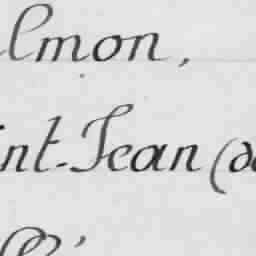 lmon,
int-Jean (de